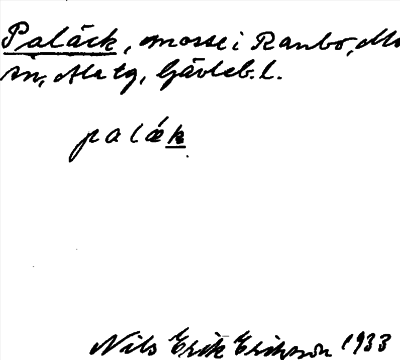 Paläck, mosse i Ranbo, Mo
sn, Ala tg, Gävleb. l.
palǽk
Nils Erik Erikson 1933